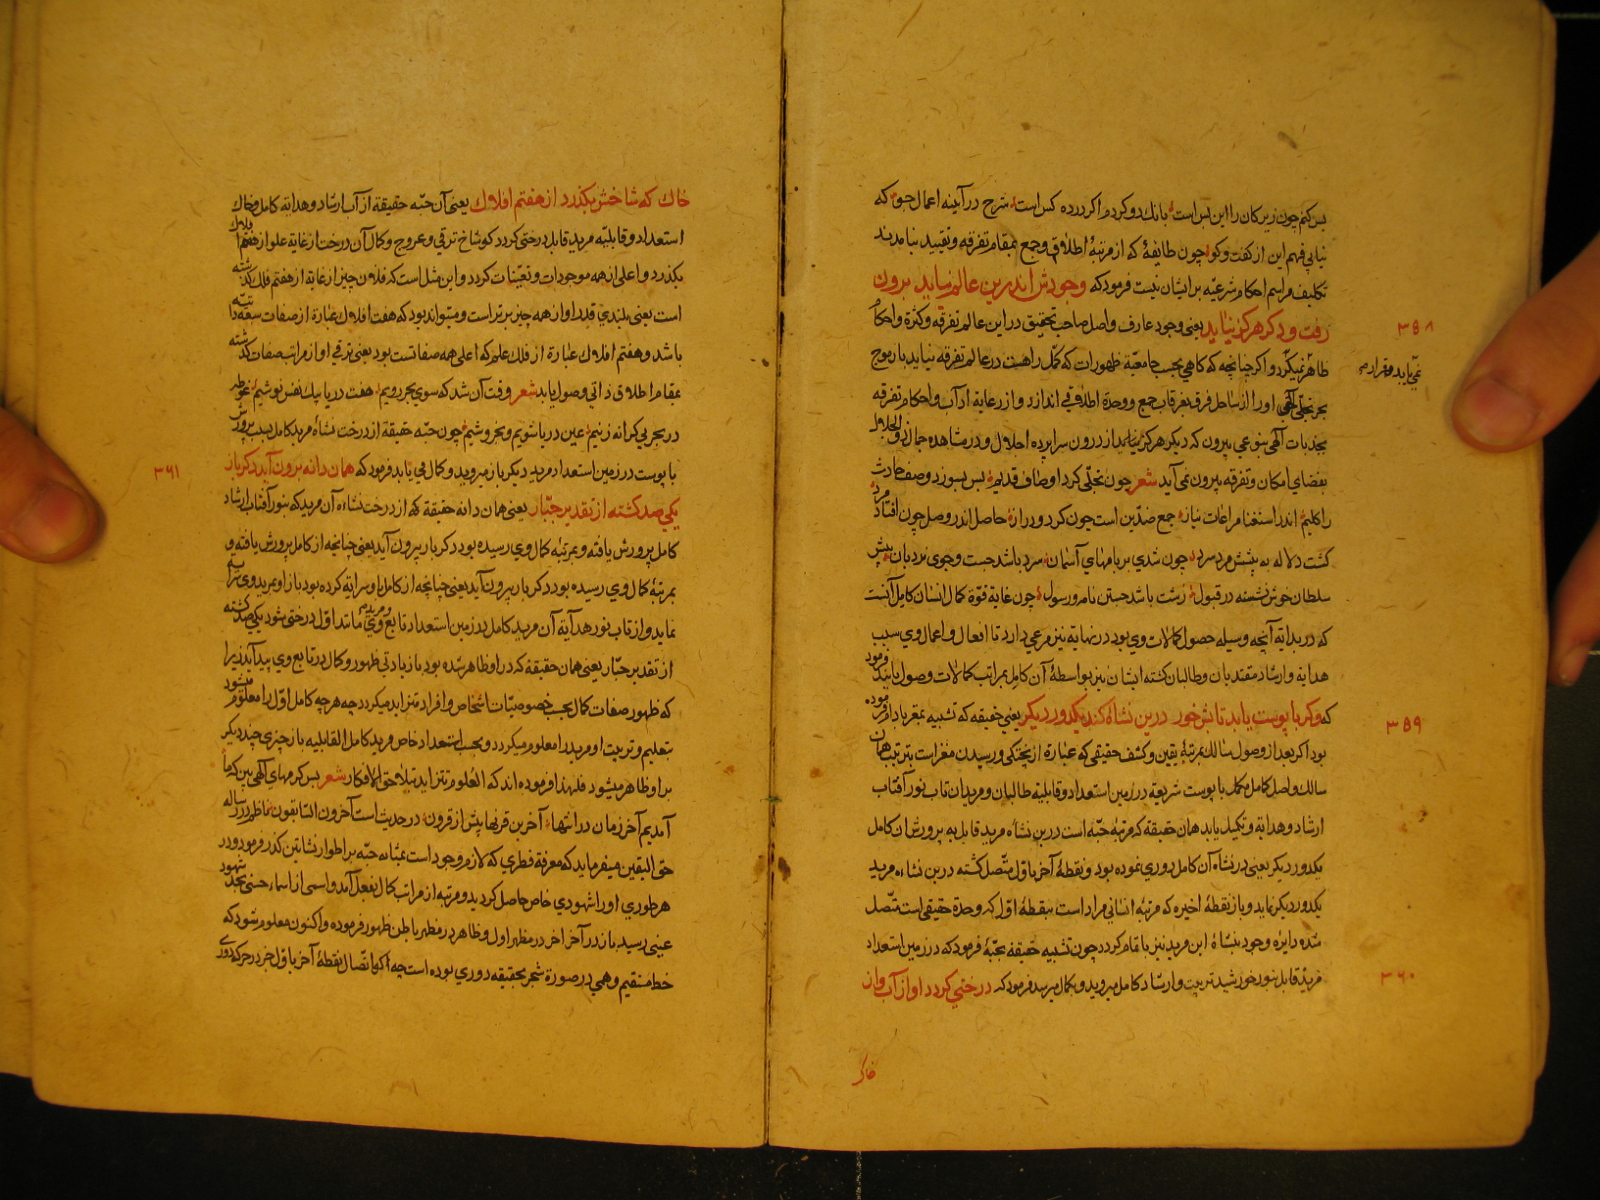 بس کنم چون زیرکان را این بس است بانک دو کردم اگر در ده کس است شرح در آینه اعمال جو که
نیابی فهم این از گفت و کو چون طایفهٔ که از مرتبهٔ اطلاق و جمع بمقام تفرقه و تقیید نیامدند
تکلیف مراسم احکام شرعیه برایشان نیست فرمود که وجودش اندرین عالم نیاید برون
رفت و دکر هرکز نیاید یعنی وجود عارف واصل صاحب تحقیق در این عالم تفرقه و کثرة و احکام
۳۵۸
ظاهر نمیگردد و اکر چنانچه که کاهی بحسب جامعیّة ظهورات که کمّل راهست در عالم تفرقه نیاید باز موج
نمی یابد و قرار
بحر تجلّی الهی او را از ساحل فرق بغرقاب جمع و وحدة اطلاقی اندازد و از رعایة اداب و احکام تفرقه
بجذبات الهی بنوعی بیرون که دیکر هرکز نیاید از درون سراپرده اجلال و در مشاهده جمال ذو الجلال
بفضای امکان و تفرقه بیرون نمی آید شعر چون تجلّی کرد اوصاف قدیم بس بسوزد وصف حادث
را کلیم اندر استغنا مراعات نیاز جمع ضدّین است چون کرد و دراز حاصل اندر وصل چون افتاد مرد
کشت دلاله به پیش مرد سرد چون شدی بر بامهای آسمان سرد باشد جست و جوی نردبان پیش
سلطان خوش نشسته در قبول زشت باشد جستن نامه و رسول چون غایة قوّة کمال انسان کامل آنست
که در بدایة آنچه وسیله حصول کمالات وی بود در نهایة نیز مرعی دارد تا افعال و اعمال وی سبب
هدایة و ارشاد مقتدیان و طالبان کشته ایشان نیز بواسطهٔ آن کامل بمراتب کمالات وصول یابند فرمود
که وکر با پوست یابد تابش خور درین نشأه کند یکدور دیکر یعنی حقیقه که تشبیه بمغز بادام فرموده
۳۵۹
بود اکر بعد از وصول سالک بمرتبهٔ یقین و کشف حقیقی که عبارة از پختکی و رسیدن مغز است بتربیت همان
سالک واصل کامل مکمل با پوست شریعة در زمین استعداد و قابلیّة طالبان و مریدان تاب نور آفتاب
ارشاد و هدایة و تکمیل یابد همان حقیقة که مرتبهٔ حبّه است درین نشأه مرید قابل به پرورش آن کامل
یکدور دیکر یعنی در نشأه آن کامل دوری نموده بود و نقطهٔ آخر باوّل متّصل کشته درین نشاءه مرید
یکدور دیکر نماید و باز نقطهٔ اخیره که مرتبهٔ انسانی مراد است بنقطهٔ اوّل که وحدة حقیقی است متّصل
شده دایرهٔ وجود بنشاهٔ این مرید نیز با تمام کردد چون تشبیه حقیقه بحبّهٔ فرمود که در زمین استعداد
مرید قابل بنور خورشید تربیت و ارشاد کامل میروید و بکمال میرسد فرمود که درختی کردد او از آب و از
۳۶۰
خاک
خاک که شاخش بکذرد از هفتم افلاک یعنی آن حبّه حقیقة از آب ارشاد و هدایة کامل و خاک
استعداد و قابلیّه مرید قابل درختی کردد کو شاخ ترقی و عروج و کمال آن درخت از غایة علو از هفتم افلاک
بکذرد و اعلی از همه موجودات و تعیّنات کردد و این مثل است که فلان چیز از غایة از هفتم فلک کذشته
است یعنی بلندی قدر او از همه چیز برتر است و میتواند بود که هفت افلاک عبارة از صفات سبعه ذاتیّه
باشد و هفتم افلاک عبارة از فلک علم که اعلی همه صفاتست بود یعنی ترقی او از مراتب صفات کذشته
بمقام اطلاق ذاتی وصول یابد شعر وقت آن شد که سوی بحر رویم هفت دریا بیک نفس نوشیم غوطه
در بحر بی کرانه زنیم عین دریا شویم و بخروشیم چون حبّه حقیقة از درخت نشاهٔ مرید کامل بسبب پرورش
با پوست در زمین استعداد مرید دیکر باز میروید و کمال می یابد فرمود که همان دانه برون آید دکر باز
۳۶۱
یکی صد کشته از تقدیر جبّار یعنی همان دانه حقیقة که از درخت نشاءه آن مرید که بنور آفتاب ارشاد
کامل پرورش یافته و بمرتبهٔ کمال وی رسیده بود دکر بار بیرون آید یعنی چنانچه از کامل پرورش یافته و
بمرتبهٔ کمال وی رسیده بود دکر بار بیرون آید یعنی چنانچه از کامل باو سرایة کرده بود باز او بمرید وی سرایة
نماید و از قاب نور هدایة آن مرید کامل در زمین استعداد تابع و مرید وی مانند اوّل درختی شود یکی صد کشته
از تقدیر جبّار یعنی همان حقیقة که در او ظاهر شده بود با زیادتی ظهور و کمال در تابع وی پیدا آید زیرا
که ظهور صفات کمال بحسب خصوصیّات اشخاص و افراد متزاید میکردد چه هرچه کامل اوّل را معلوم میشود
بتعلیم و تربیت او مرید را معلوم میکردد و بحسب استعداد خاص مرید کامل القابلیه باز چیزی چند دیکر
بر او ظاهر میشود فلهذا فرموده اند که العلوم تتزاید بتلاحق الافکار شعر بس کرمهای الهی بین که ما
آمدیم آخر زمان در انتها آخرین قرنها پیش از قرون در حدیث است آخرون السّابقون ناظم در رساله
حق الیقین میفرماید که معرفة فطری که لازم وجود است بمثابه حبّه بر اطوار نشأتین کذر فرمود و در
هر طوری او را شهودی خاص حاصل کردید و مرتبه از مراتب کمال بفعل آمد و اسمی از اسماء حسنی بحد شهود
عینی رسید باز در آخر آخر در مظهر اول و ظاهر در مظهر باطن ظهور فرموده و اکنون معلوم شود که
خط مستقیم وهمی در صورة شجر بحقیقه دوری بوده است چه اکر اتّصال نقطهٔ آخر باوّل جز در حرکه دوری